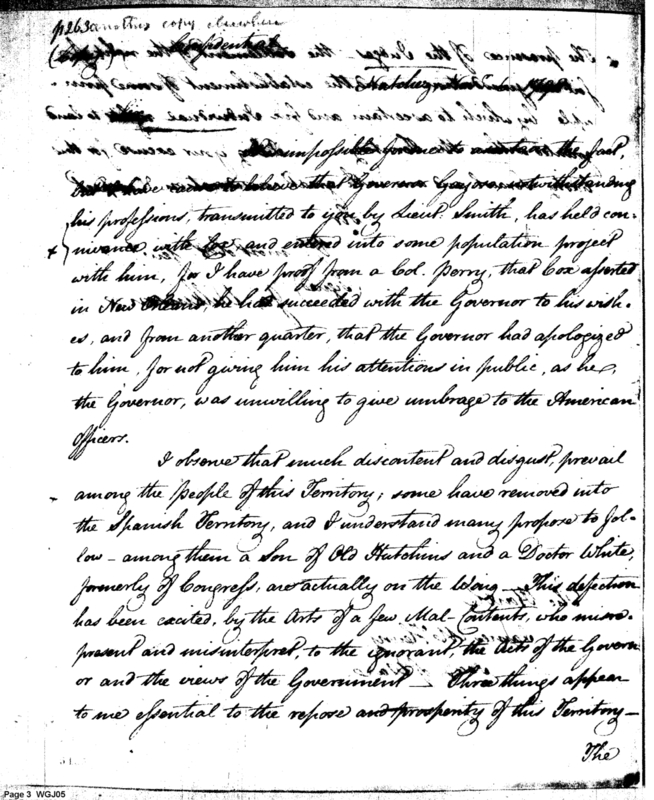 p263 another copy elsewhere
(Copy) Confidential
Natchez
It is impossible for me to ascertain the fact,
but I have reason to believe that Governor Gayoso, notwithstanding
his professions, transmitted to you by Lieut. Smith, has held con-
nivance with Cox, and entered into some population project
with him, for I have proof from a Col. Perry, that Cox asserted
in New Orleans, he had succeeded with the Governor to his wish-
es, and from another quarter, that the Governor had apologized
to him, for not giving him his attentions in public, as he,
the Governor, was unwilling to give umbrage to the American
Officers.
I observe that much discontent and disgust, prevail
among the people of this Territory; some have removed into
the Spanish Territory, and I understand many propose to fol-
low – among them a Son of Old Hutchins and a Doctor White,
formerly of Congress, are actually on the Wing – This defection
has been excited, by the Arts of a few Mal-Contents, who misre-
present and misinterpret, to the ignorant, the Acts of the Govern-
or and the views of the Government – Three things appear
to me essential to the repose and prosperity of this Territory –
The
Page 3 WGJ05